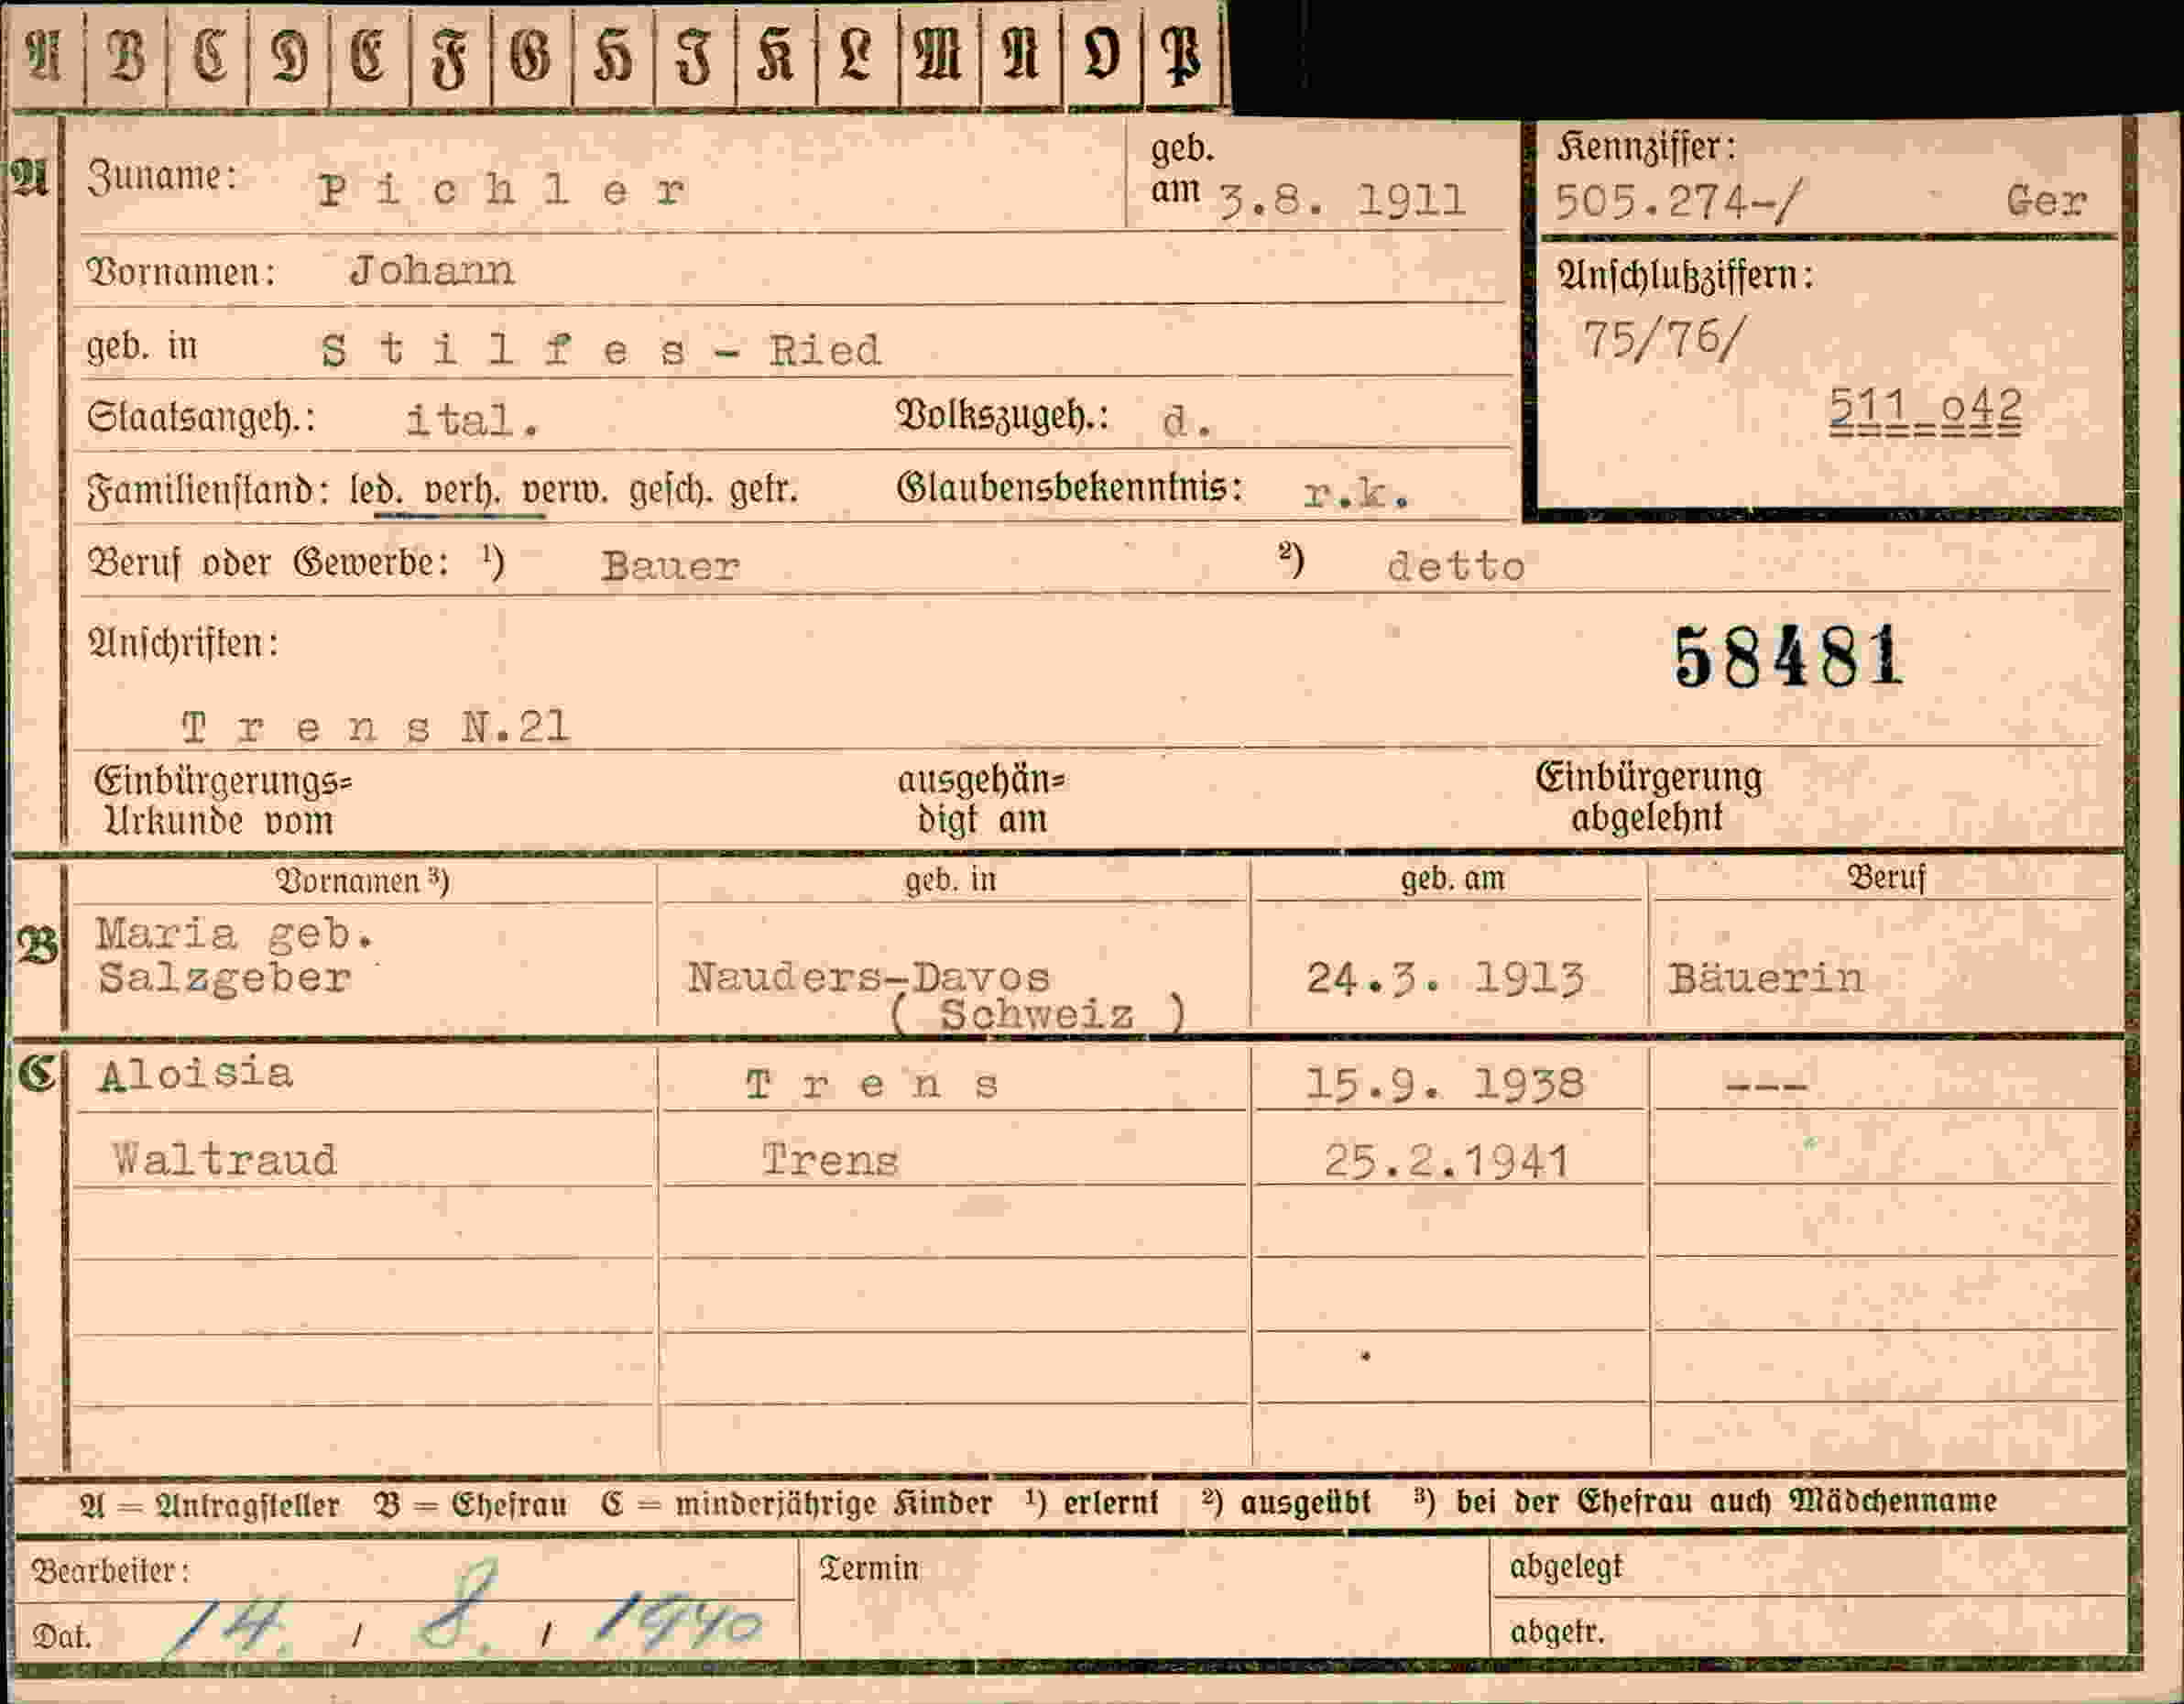 A B C D E F G H I K L M N O P
A Zuname: Pichler geb. am 3.8. 1911
Kennziffer: 505.274-/ Ger
Vornamen: Johann
Anschlußziffern:
geb. in Stilfes - Ried
75/76/
Staatsangeh.: ital. Volkszugeh.: d.
511 o42
Familienstand: led. verh. verw. gesch. getr. Glaubensbekenntnis: r.k.
Beruf oder Gewerbe: ¹) Bauer ²) detto
Anschriften:
58481
Trens N.21
Einbürgerungs= ausgehän= Einbürgerung
Urkunde vom digt am abgelehnt
Vornamen ³) geb. in geb. am Beruf
B Maria geb.
Salzgeber Nauders-Davos 24.3. 1913 Bäuerin
( Schweiz )
C Aloisia Trens 15.9. 1938 ---
Waltraud Trens 25.2.1941
A = Antragsteller B = Ehefrau C = minderjährige Kinder ¹) erlernt ²) ausgeübt ³) bei der Ehefrau auch Mädchenname
Bearbeiter: Termin abgelegt
Dat. 14. / 8. / 1940 abgetr.